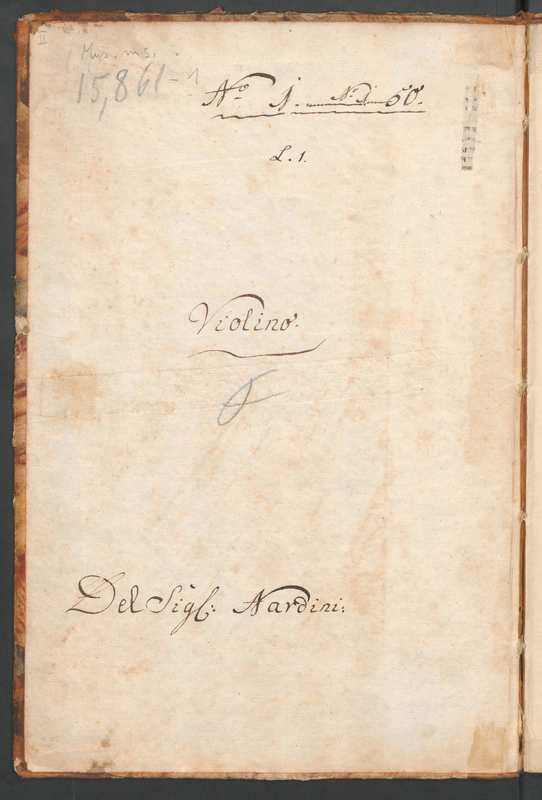 II
Mus. ms.
15,861-1
No 1. No 1 50.
L. 1.
Violino.
Del Sigl: Nardini: